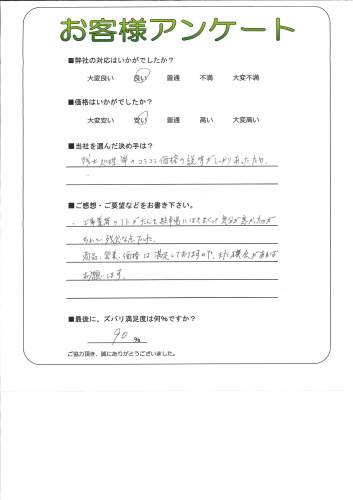 お客様アンケート
■弊社の対応はいかがでしたか？
大変良い 良い 普通 不満 大変不満
■価格はいかがでしたか？
大変安い 安い 普通 高い 大変高い
■当社を選んだ決め手は？
残土処理等のコミコミ価格の説明がしっかりあったため。
■ご感想・ご要望などをお書き下さい。
残念な点でした。
商品、営業、価格は満足しておりますので、また機会があれば
お願いします。
■最後に、ズバリ満足度は何％ですか？
90 ％
ご協力頂き、誠にありがとうございました。